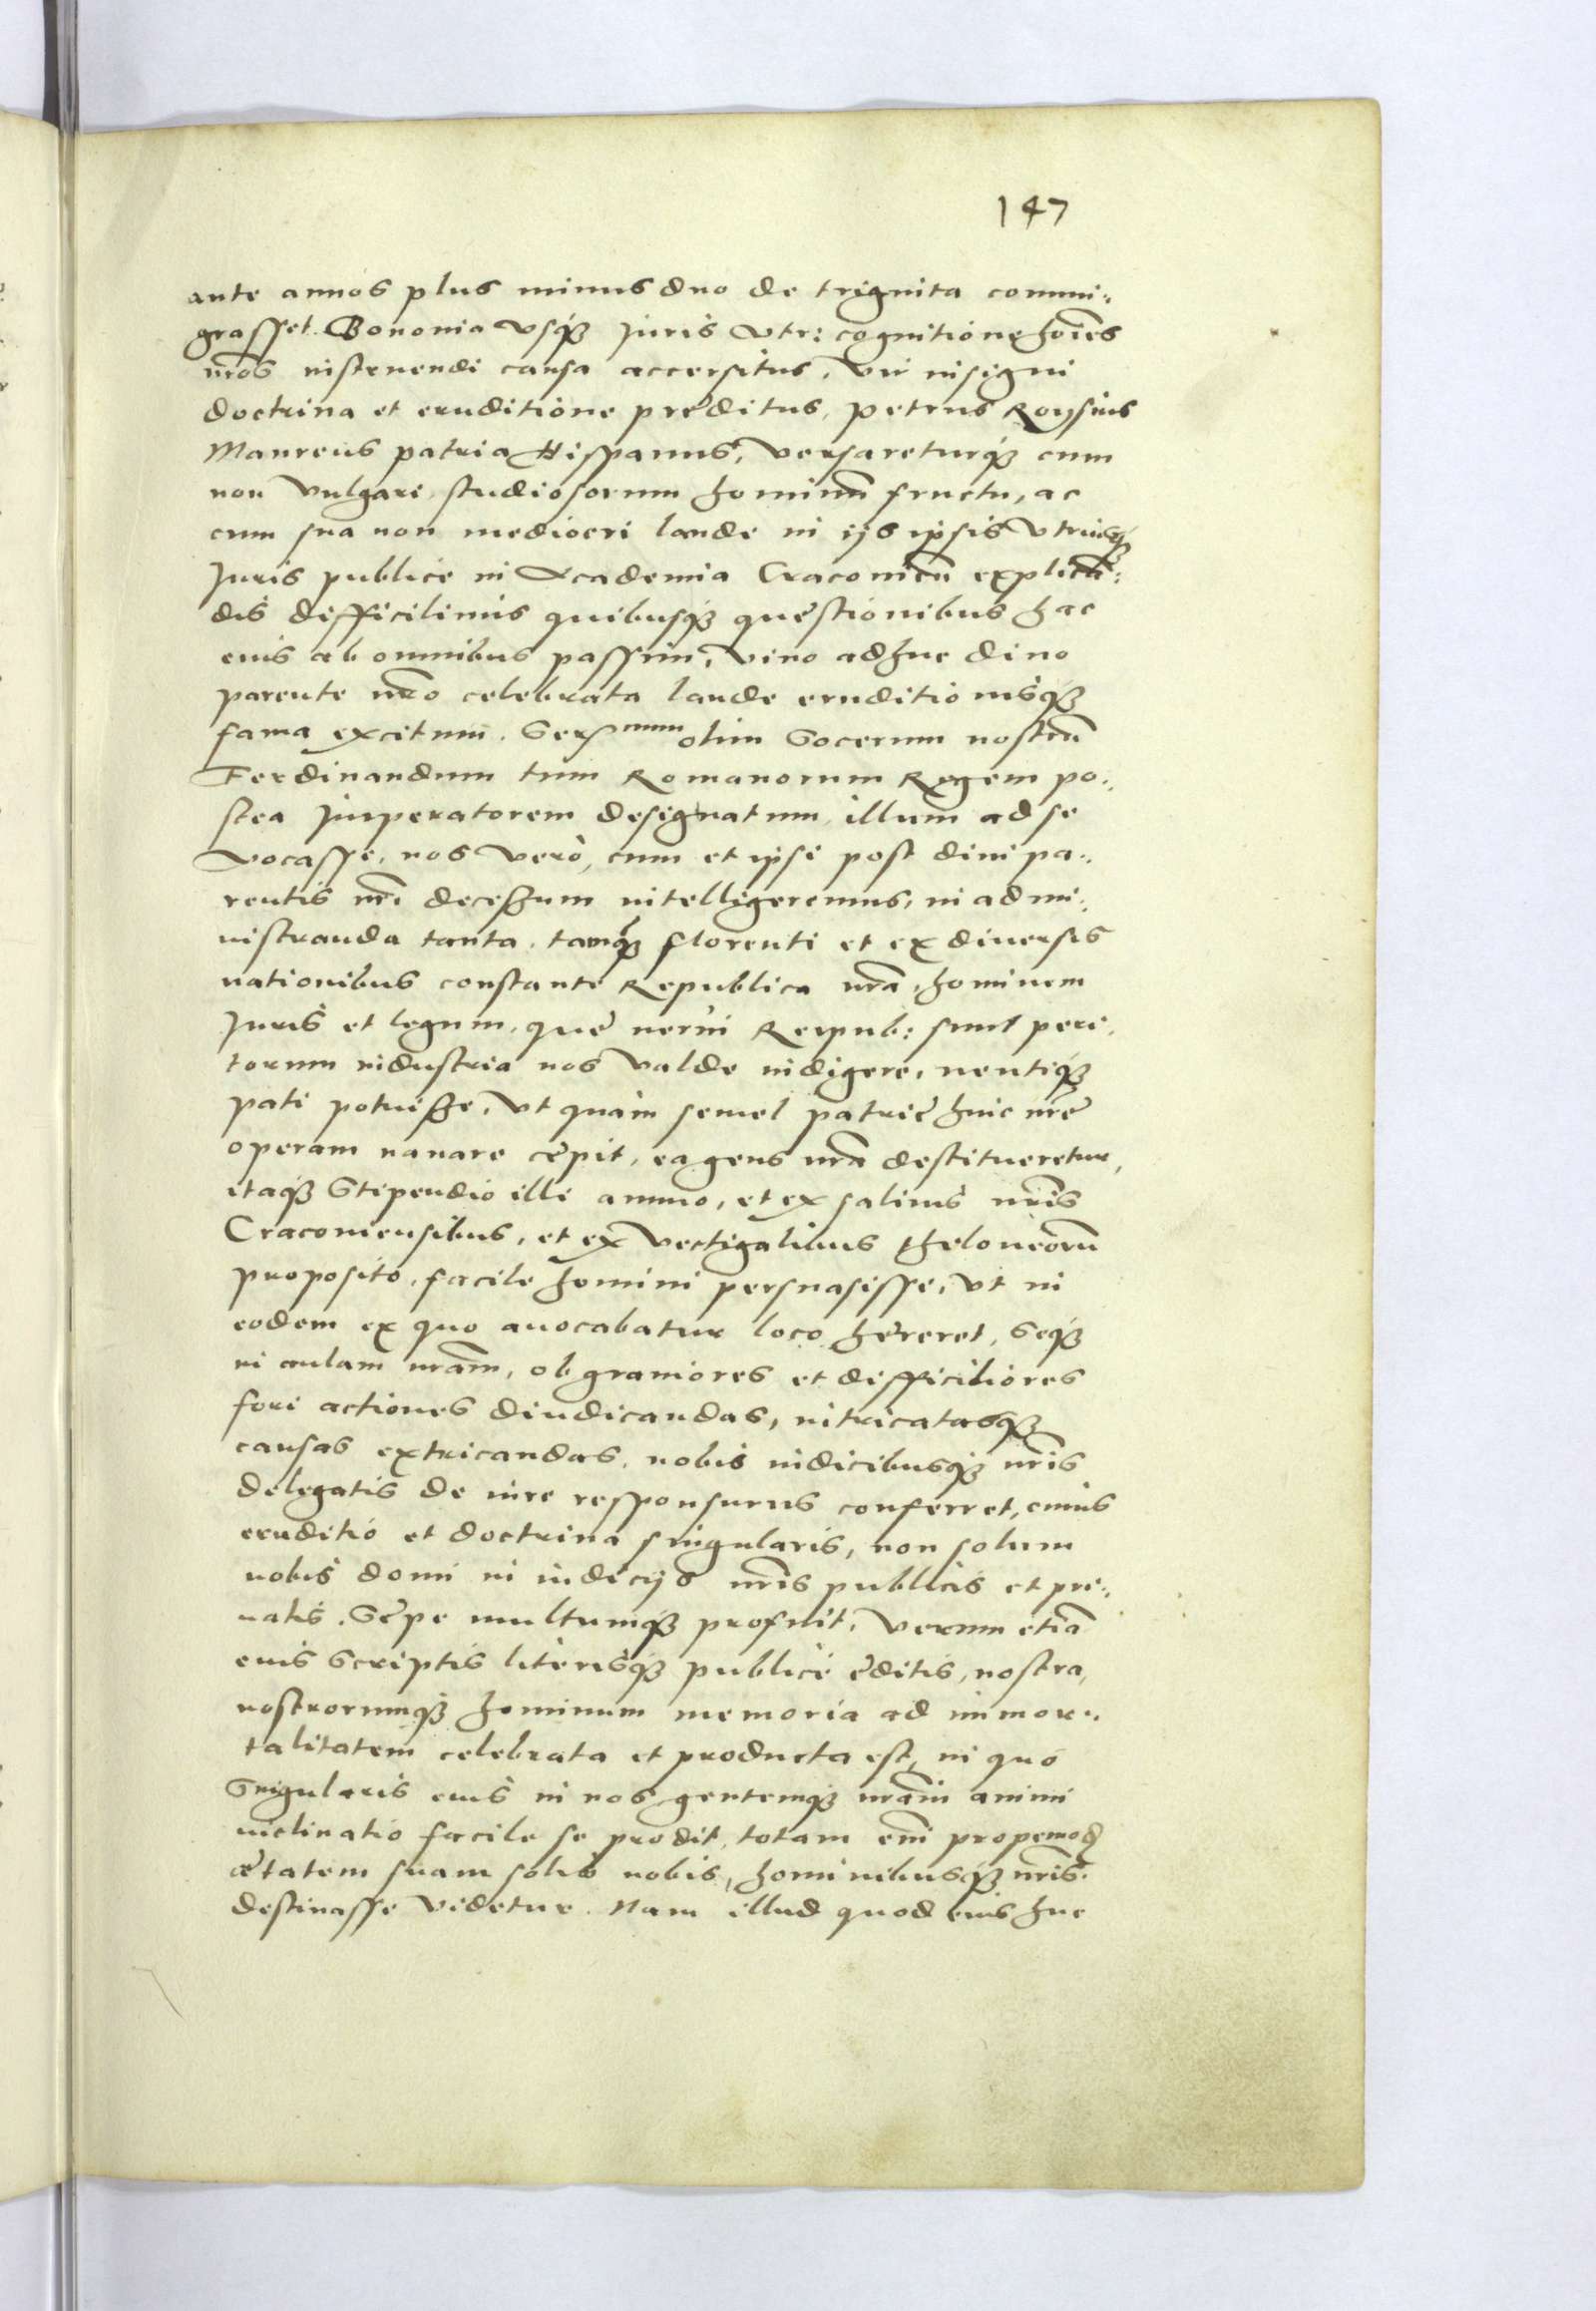 147
ante annos plus minus duo de triginta commi:
grasset Bononia vsqȝ Juris vtr: cognitione hoīes
nr̄os instruendi causa accersitus, vir insigni
doctrina et eruditione prędítus, petrus Roysius
Maureus patria Hispanus, versareturqȝ cum
non vulgari studiosorum hominū fructu, ac
cum sua non mediocri laude in ijs ipsis vtriusqȝ
Juris publice in Academia Cracouien̄ explicā:
dis difficilimis quibusqȝ quęstionibus hac
eius ab omnibus passim, viuo adhuc diuo
parente nr̄o celebrata laude eruditionisqȝ
fama excitum. Ser^mum olim Socerum nostrū
Ferdinandum tum Romanorum Regem po:
stea Imperatorem designatum illum ad se
vocasse, nos verò, cum et ipsi post diui pa:
rentis nr̄i decessum intelligeremus, in admi:
nistranda tanta, tamqȝ florenti et ex diuersis
nationibus constante Republica nr̄a, hominem
Juris et legum, quę nerui Reipub: sunt peri
torum industria nos valde indigere, neutiqȝ
pati potuisse, vt quàm semel patrię huic nr̄ę
operam nauare cępit, ea gens nr̄a destitueretur,
itaqȝ Stipendio illi annuo, et ex salinis nr̄is
Cracouiensibus, et ex vectigalibus theloneorū
proposito, facile homini persuasisse, vt in
eodem ex quo auocabatur loco hęreret, Seqȝ
in aulam nr̄am, ob grauiores et difficiliores
fori actiones diudicandas, intricatasqȝ
causas extricandas, nobis iudicibusqȝ nr̄is
delegatis de iure responsurus conferret, cuius
eruditio et doctrina singularis, non solum
nobis domi in iudicijs nr̄is publicis et pri:
uatis, Sępe multumqȝ profuit, verum etiā
eius Scriptis literisqȝ publicè ęditis, nostra,
nostrorumqȝ hominum memoria ad immor:
talitatem celebrata et producta est, in quo
Singularis eius in nos gentemqȝ nr̄am animi
inclinatio facile se prodit, totam eni propemod
ętatem suam solis nobis, hominibusqȝ nr̄is
destinasse videtur. Nam illud quod eius huc